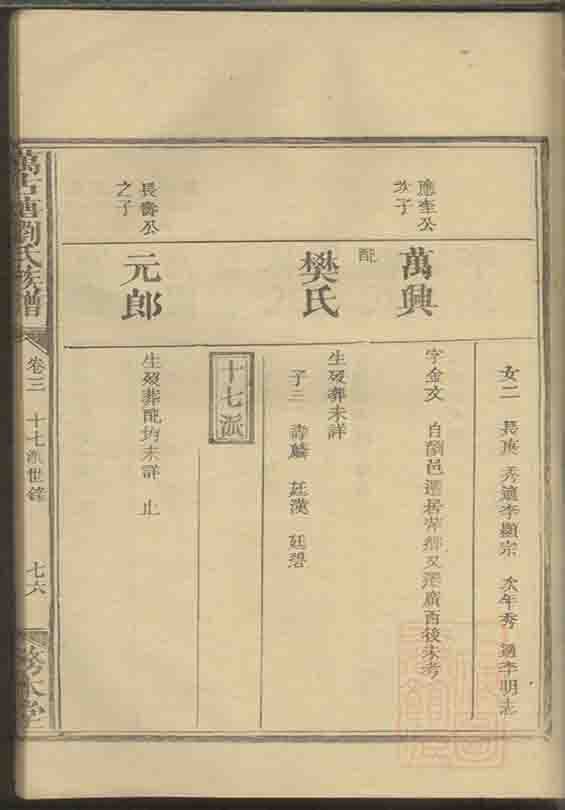 女二 長庚 秀適李顯宗 次年秀 適李明志
應奎公
次子
萬興
字金文 自瀏邑遷居萍鄉又遷廣西後未考
配
樊氏
生歿葬未詳
子三 壽麟 廷漢 廷碧
十七派
長壽公
之子
元郎
生歿葬配均未詳 止
劉氏族譜
卷三 十七派世錄
七六
務本堂